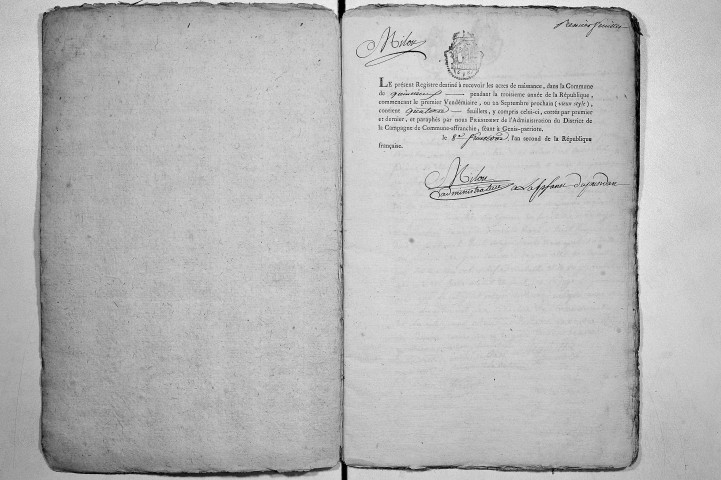 Premier feuillet
Milou
LE présent Registre destiné à recevoir les actes de naissance, dans la Commune
de quincieux pendant la troisieme année de la République,
commençant le premier Vendémiaire, ou 22 Septembre prochain (vieux style),
contient quatorze feuillets, y compris celui-ci, cottés par premier
et dernier, et paraphés par nous PRÉSIDENT de l'Administration du District de
la Campagne de Commune-affranchie, séant à Genis-patriote.
le 8e fructidor, l'an second de la République
françaiſe.
Milou
administrateur